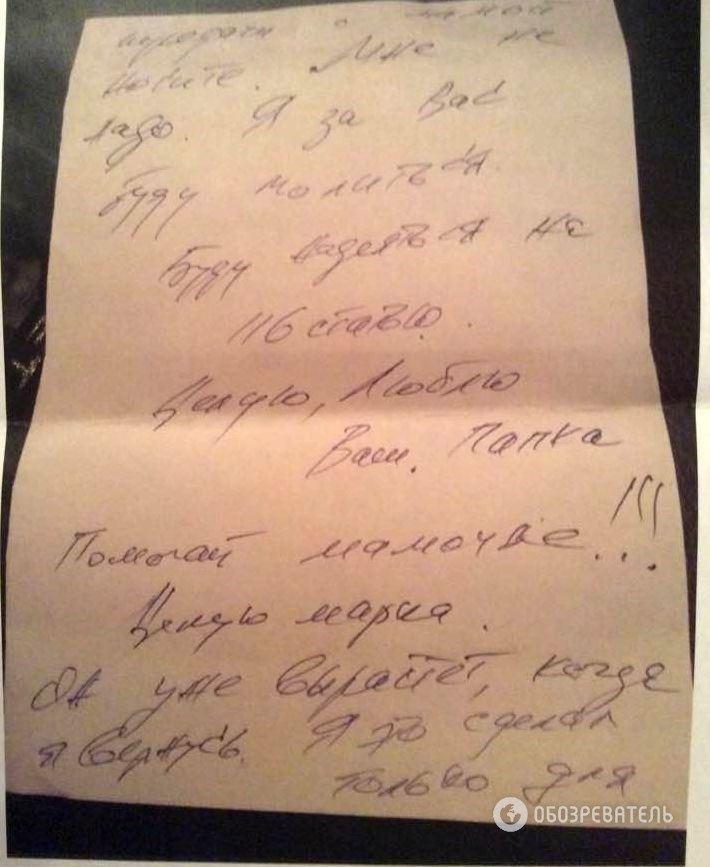 передачи домой
носите. Мне не
надо. Я за Вас
буду молиться.
Буду надеяться на
116 статью.
Целую, Люблю
Ваш. Папка
Помогай мамочке!!!
Целую марка.
Он уже вырастет, когда
я вернусь. Я это сделал
только для
ОБОЗРЕВАТЕЛЬ